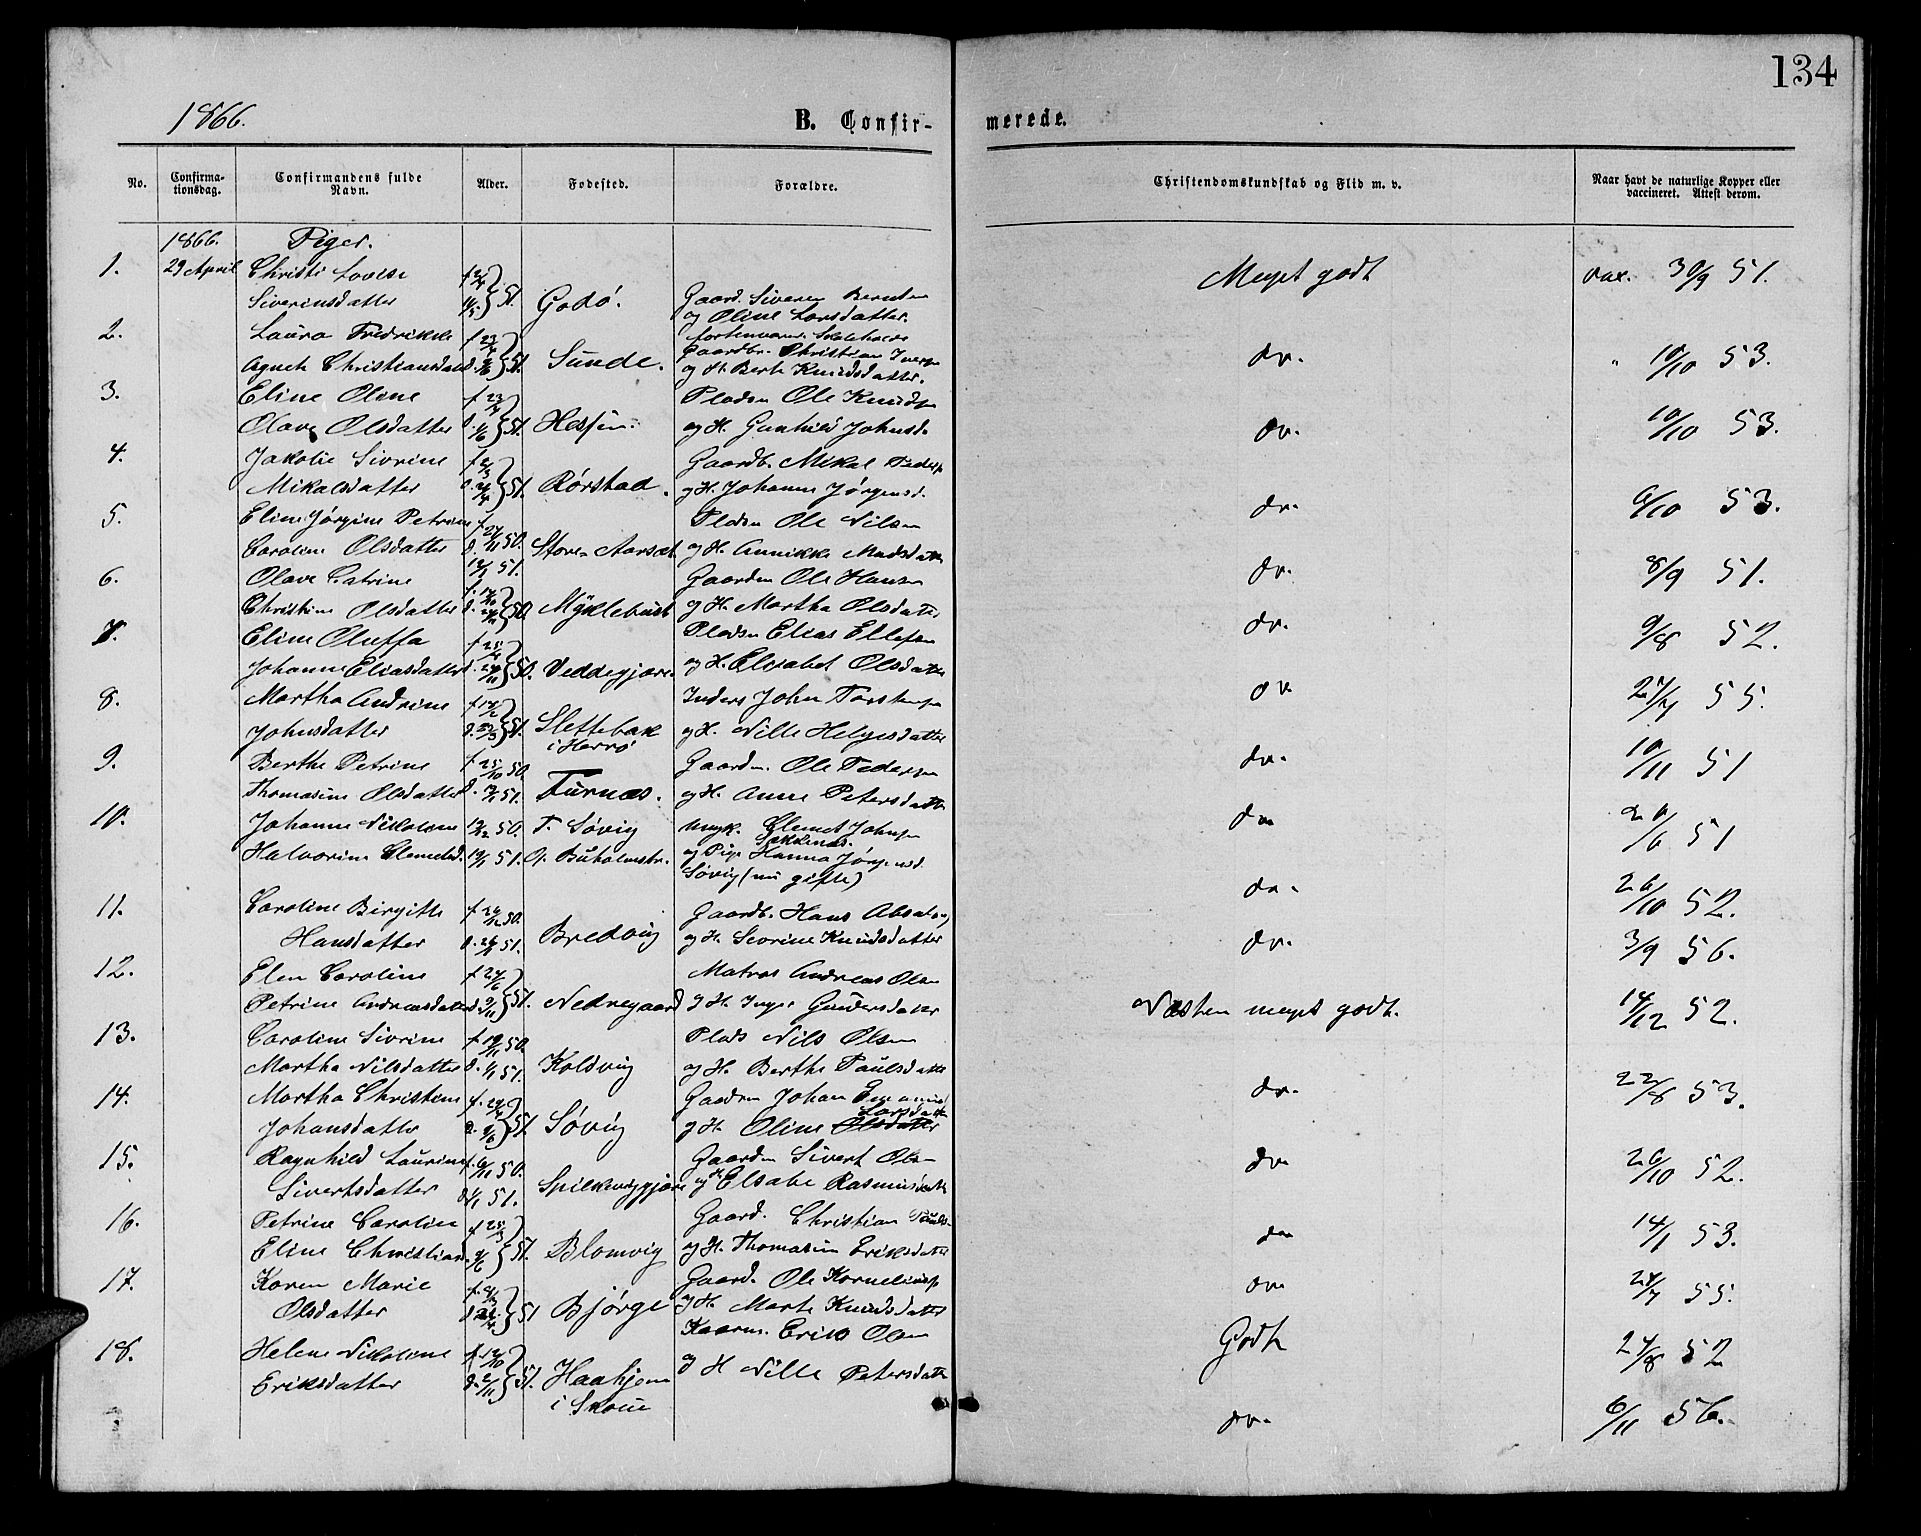 134
1866.
B. Confir-
merede.
No.
Confirma-
tionsdag.
Confirmandens fulde
Navn.
Alder.
Fødested.
Forældre.
Christendomskundskab og Flid m. v.
Naar havt de naturlige Kopper eller
vaccineret. Attest derom.
1866. Piger.
1. 29 April Christi Lovise
Siverinsdatter 51. Godø. Gaard. Siveren Berntsen
og Oline Larsdatter.
Meget godt vac. 30/9 51.
2. Laura Fredrikke
Agnete Christiansdatt 51. Sunde. Gaardbr. Christian Iversen
og H. Berte Knudsdatter.
do. " 10/10 53.
3. Eline Oline Pladsm Ole Knudsen
Olave Olsdatter 51. Hessen. og H. Gunhild Johnsd.
do. 10/10 53.
4. Jakobie Sivrine Gaardb. Mikal Peders
Mikalsdatter 51. Rørstad. og H. Johanne Jørgensd.
do. 6/10 53.
5. Eline Jørgine Petrine 50. Pladsm Ole Nilsen
Caroline Olsdatter 51. Store Aarset og H. Annikke Madsdatter
do. 8/9 51.
6. Olave Catrine Gaardm Ole Hansen
Christine Olsdatter 50. Myklebust og H. Martha Olsdatter
do. 9/8 52.
7. Eline Oluffa Pladsm Elias Ellefsen
Johanne Eliasdatter 50. Veddegjære og H. Elisabet Olsdatter
do 55.
8. Martha Andrine Inders John Torstensen
Johnsdatter 51. Slettebak
i Herrø og H. Nille Helgesdatter
do. 10/11 51
9. Berthe Petrine 25/10 50. Gaardm. Ole Pedersen
Thomasine Olsdatter 51. Turnæs. og H. Anne Petersdatter
do 51
10. Johanne Nikoline 50. F. Søvig Ungk. Clemet Johnsen
Halvorine Clemetsd. 51. O. Buholmstr. og Pige Hanna Jørgensd.
Søvig (nu gifte)
do. 26/10 52.
11. Caroline Birgitte 50. Gaardb. Hans Absalons
Hansdatter 51. Bredvig og H. Sevrine Knudsdatter
do. 3/9 56.
12. Elen Caroline Matros Andreas Olsen
Petrine Andreasdatter 51. Nedregaard og H. Inger Gundersdatter
Næsten meget godt. 14/12 52.
13. Caroline Sivrine 50. Plads Nils Olsen
Martha Nilsdatter 1/1 51. Kolsvig og H. Berthe Paulsdatter
do. 22/8 53.
14. Martha Christine Gaardm Johan
Larsdatter
Johansdatter 51. Søvig og H. Oline Olsdatter
do 26/10 52.
15. Ragnhild Laurine 6/11 50. Gaardm Sivert Olsen
Sivertsdatter 1/1 51. Spilkevigjære og H Elsabe Rasmusdatter
do 14/1 53.
16. Petrine Caroline 25/3 Gaard. Christian Pauls
Eline Christiand. 9/6 51. Blomvig og H. Thomasine Eriksdatter
do 55.
17. Karen Marie Gaard. Ole Korneliusen
Olsdatter 51 Bjørge og H. Marte Knudsdatter
Godt 52
18. Helene Nikoline 12/10 Kaarm. Erik Olsen
Eriksdatter 2/11 51. Haahjem
i Skoue og H Nille Petersdatter
do. 6/11 56.